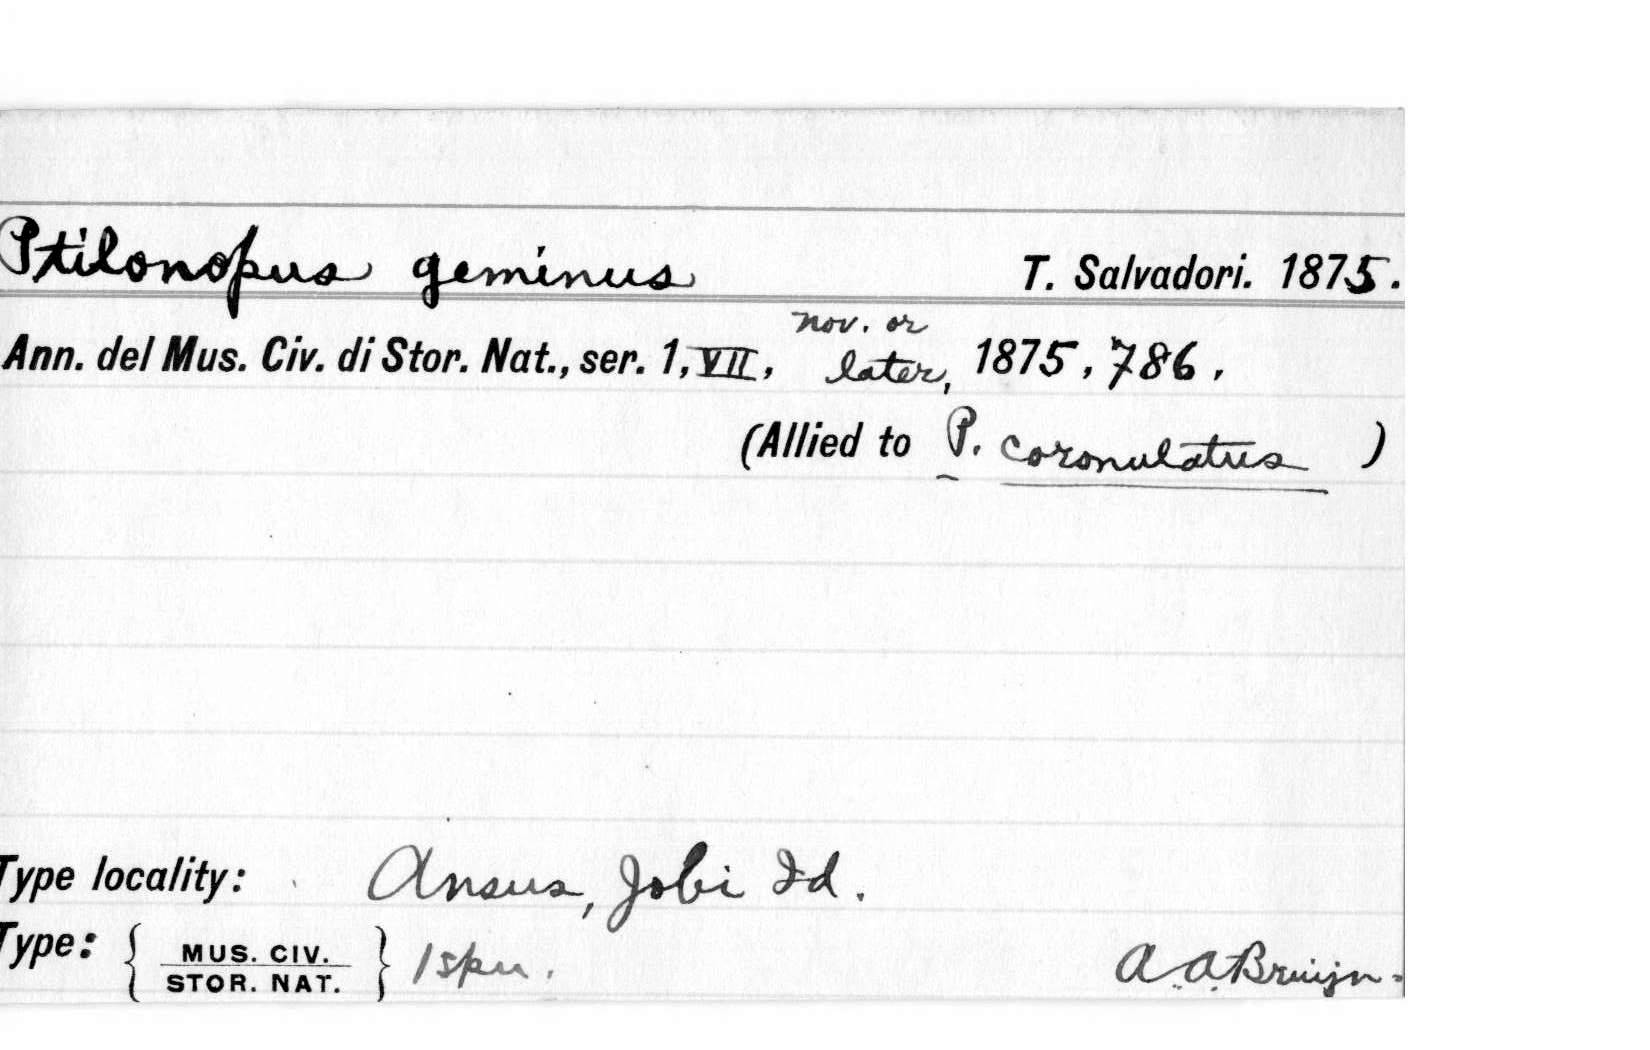 Ptilonopus geminus T. Salvadori. 1875.
Ann. del Mus. Civ. di Stor. Nat., ser. 1, VII, nov. or later, 1875, 786.
(Allied to P. coronulatus )
Type locality: Ansus, Jobi Id.
Type: { MUS. CIV. STOR. NAT. } 1 spm. A. A. Bruijn.